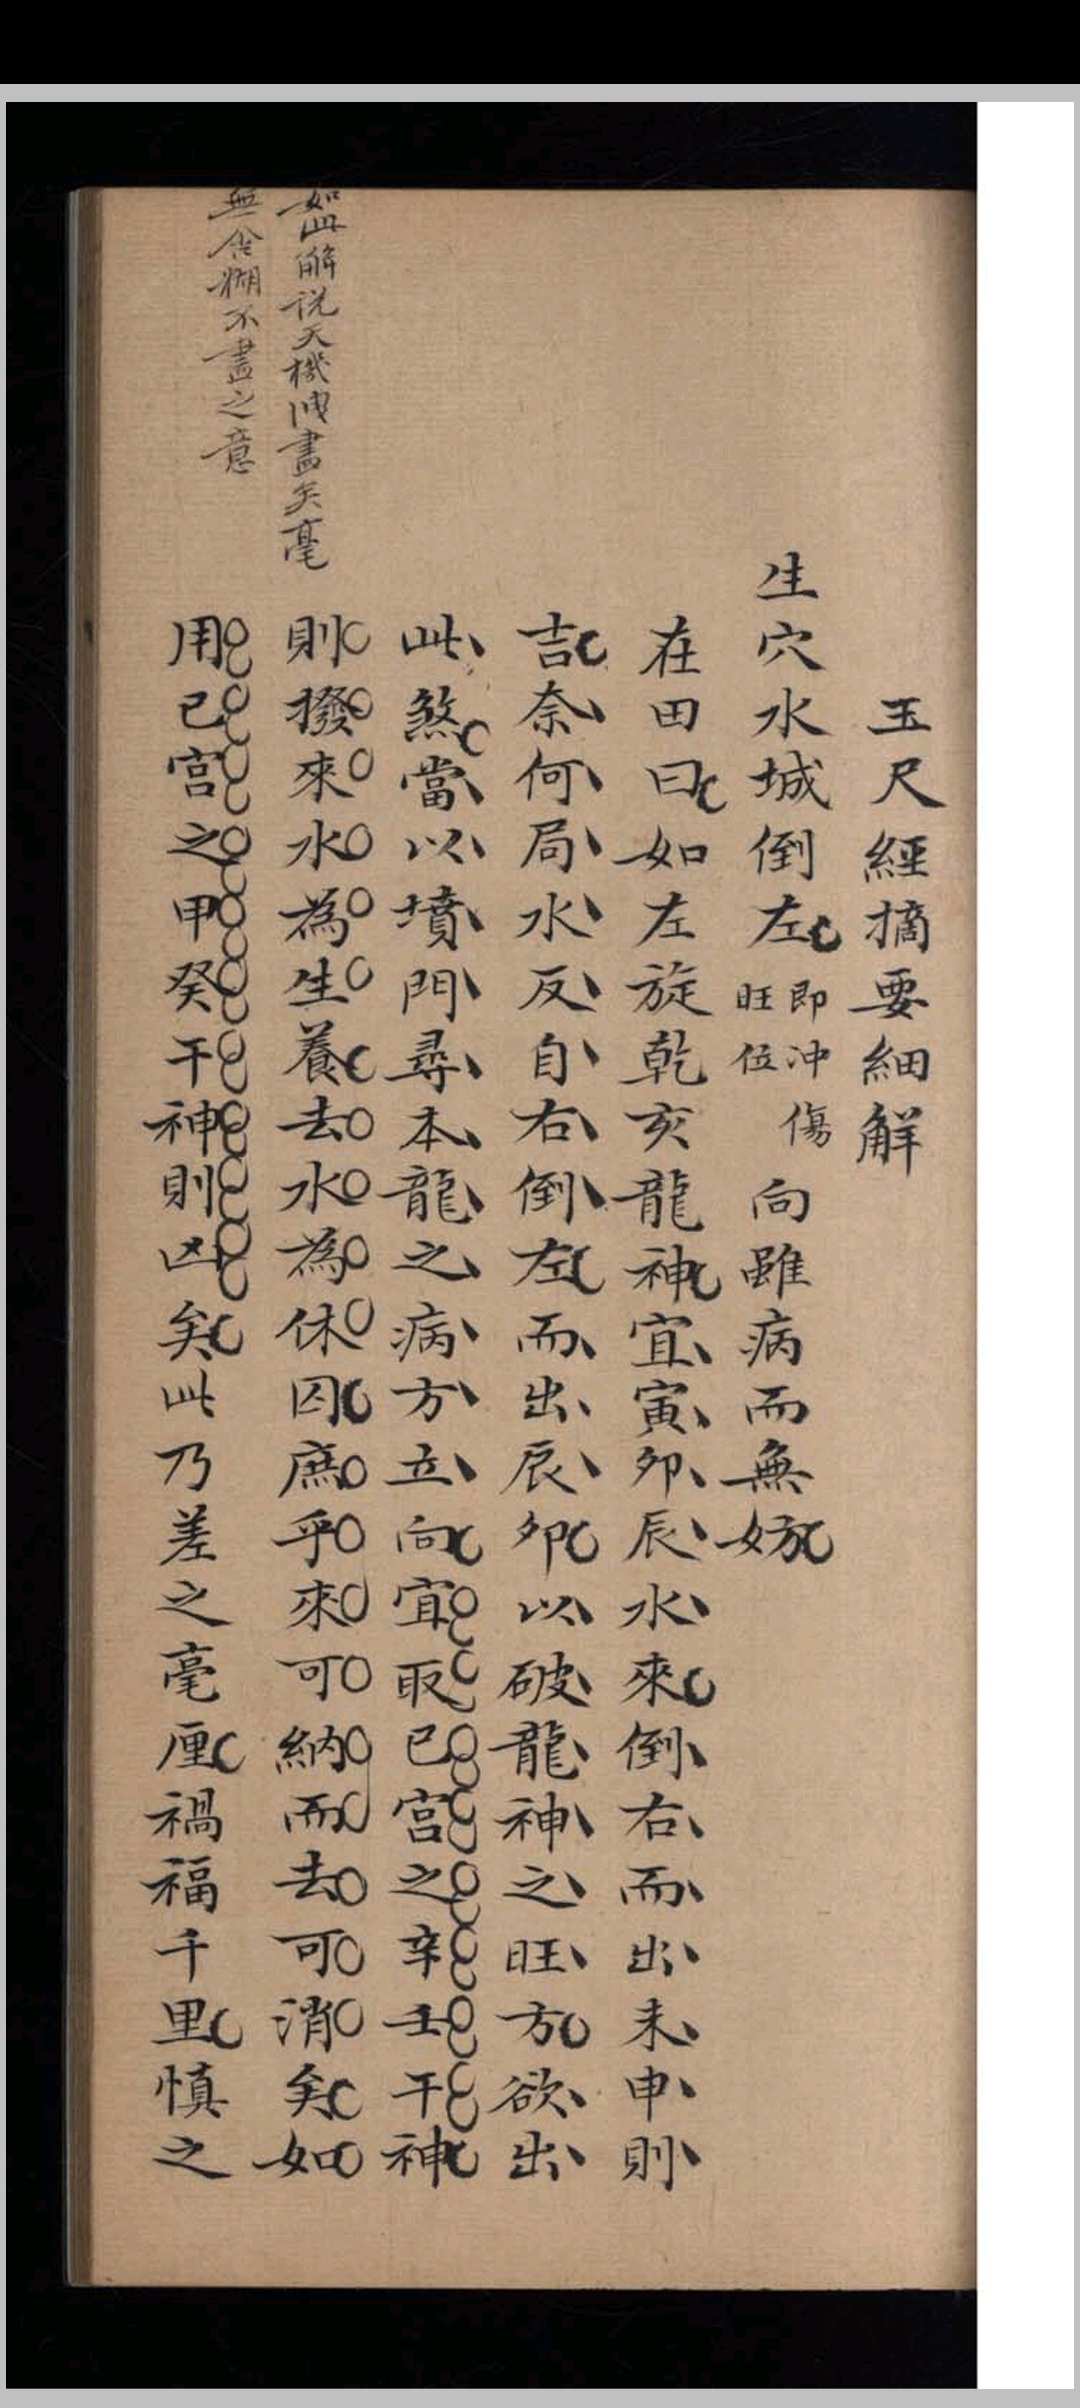 玉尺經摘要細解
生穴水城倒左即冲傷旺位向雖病而無妨
在田曰如左旋乾亥龍神宜寅卯辰水來倒右而出未申則
吉奈何局水反自右倒左而出辰卯以破龍神之旺方欲出
此煞當以墳門尋本龍之病方立向宜取巳宮之辛壬干神
則撥來水為生養去水為休囚庶乎來可納而去可消矣如
用巳宮之甲癸干神則凶矣此乃差之毫厘禍福千里慎之
如此解说天機洩盡矣毫
無含糊不盡之意